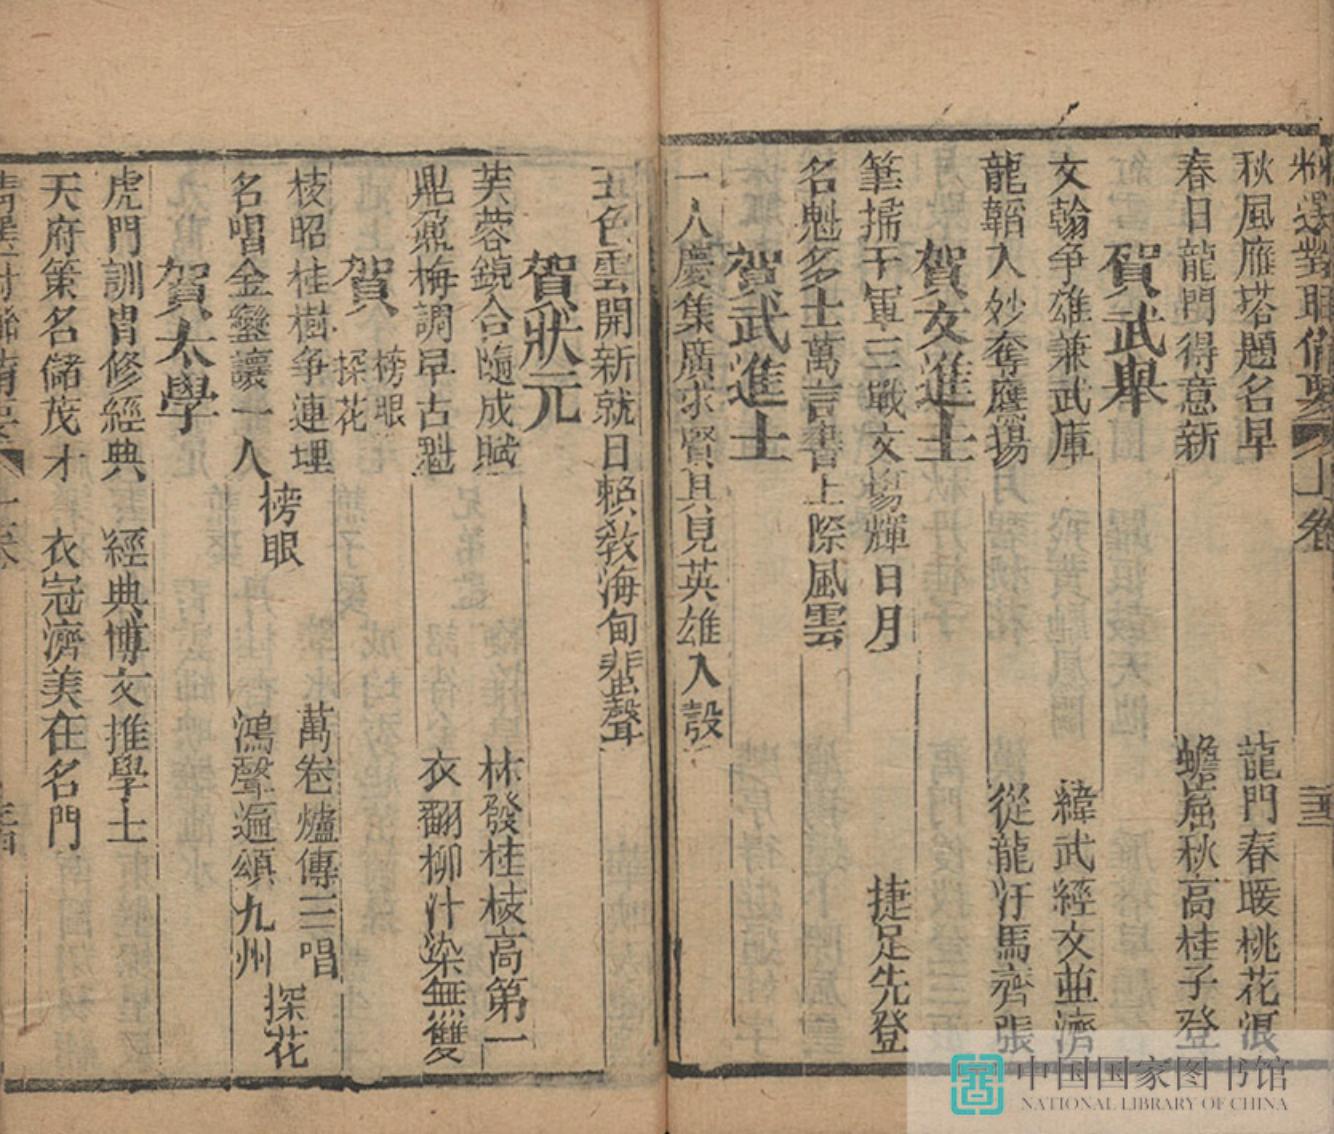 秋風雁塔題名早
龍門春暖桃花浪
春日龍門得意新
蟾窟秋高桂子登
賀武舉
文翰争雄兼武庫
緯武經文並濟
龍韜入妙奪鷹揚
從龍汗馬齊張
賀文進士
筆掃千軍三戰文場輝日月
捷足先登
名魁多士萬言書上際風雲
賀武進士
一人慶集廣求賢具見英雄入彀
五色雲開新就日賴教海甸蜚聲
賀狀元
芙蓉鏡合隨成賦
林發桂枝高第一
鼎鼐梅調早古魁
衣翻柳汁染無雙
賀
榜眼
探花
枝昭桂樹争連理
萬卷爐傳三唱
榜眼
名唱金鑾讓一人
鴻聲遍頌九州
探花
賀太學
虎門訓胄修經典
經典博文推學士
天府策名儲茂才
衣冠濟美在名門
中国国家图书馆
NATIONAL LIBRARY OF CHINA